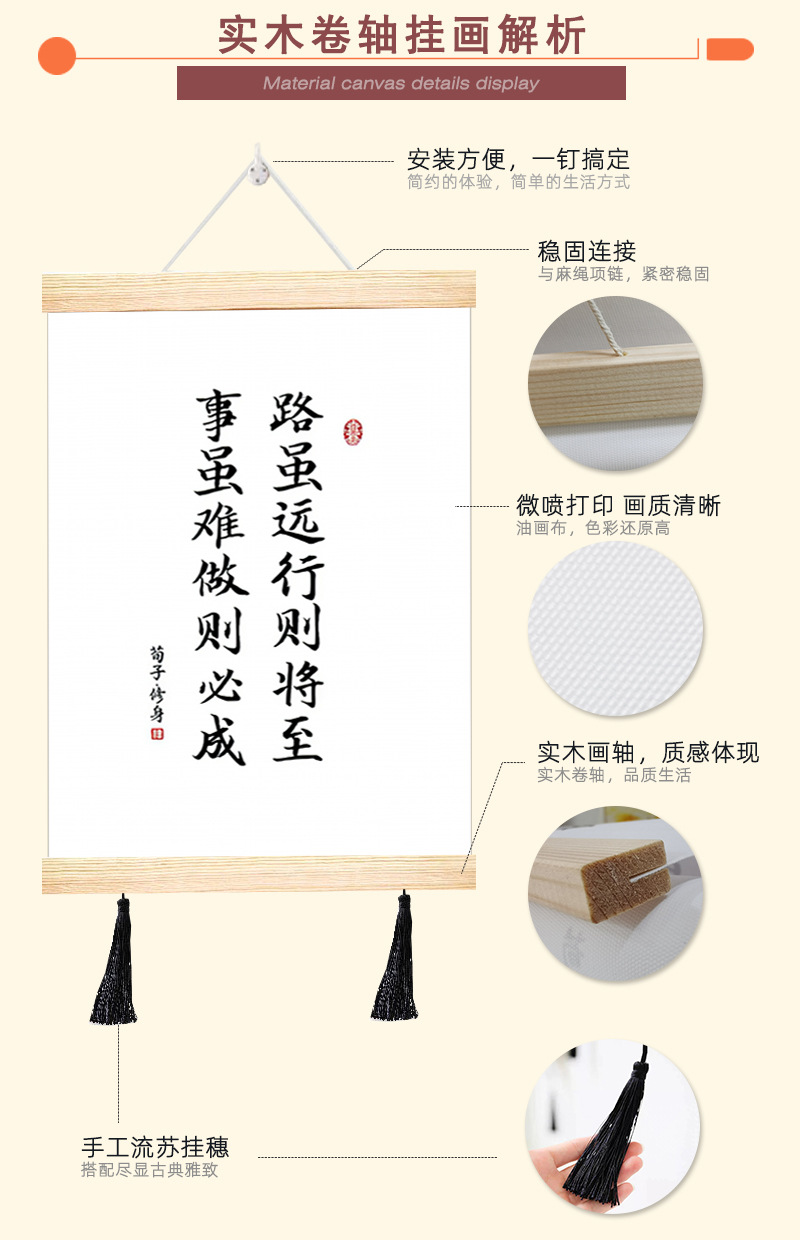 实木卷轴挂画解析
Material canvas details display
安装方便，一钉搞定
简约的体验，简单的生活方式
稳固连接
与麻绳项链，紧密稳固
路虽远行则将至
事虽难做则必成
荀子·修身
微喷打印 画质清晰
油画布，色彩还原高
实木画轴，质感体现
实木卷轴，品质生活
手工流苏挂穗
搭配尽显古典雅致